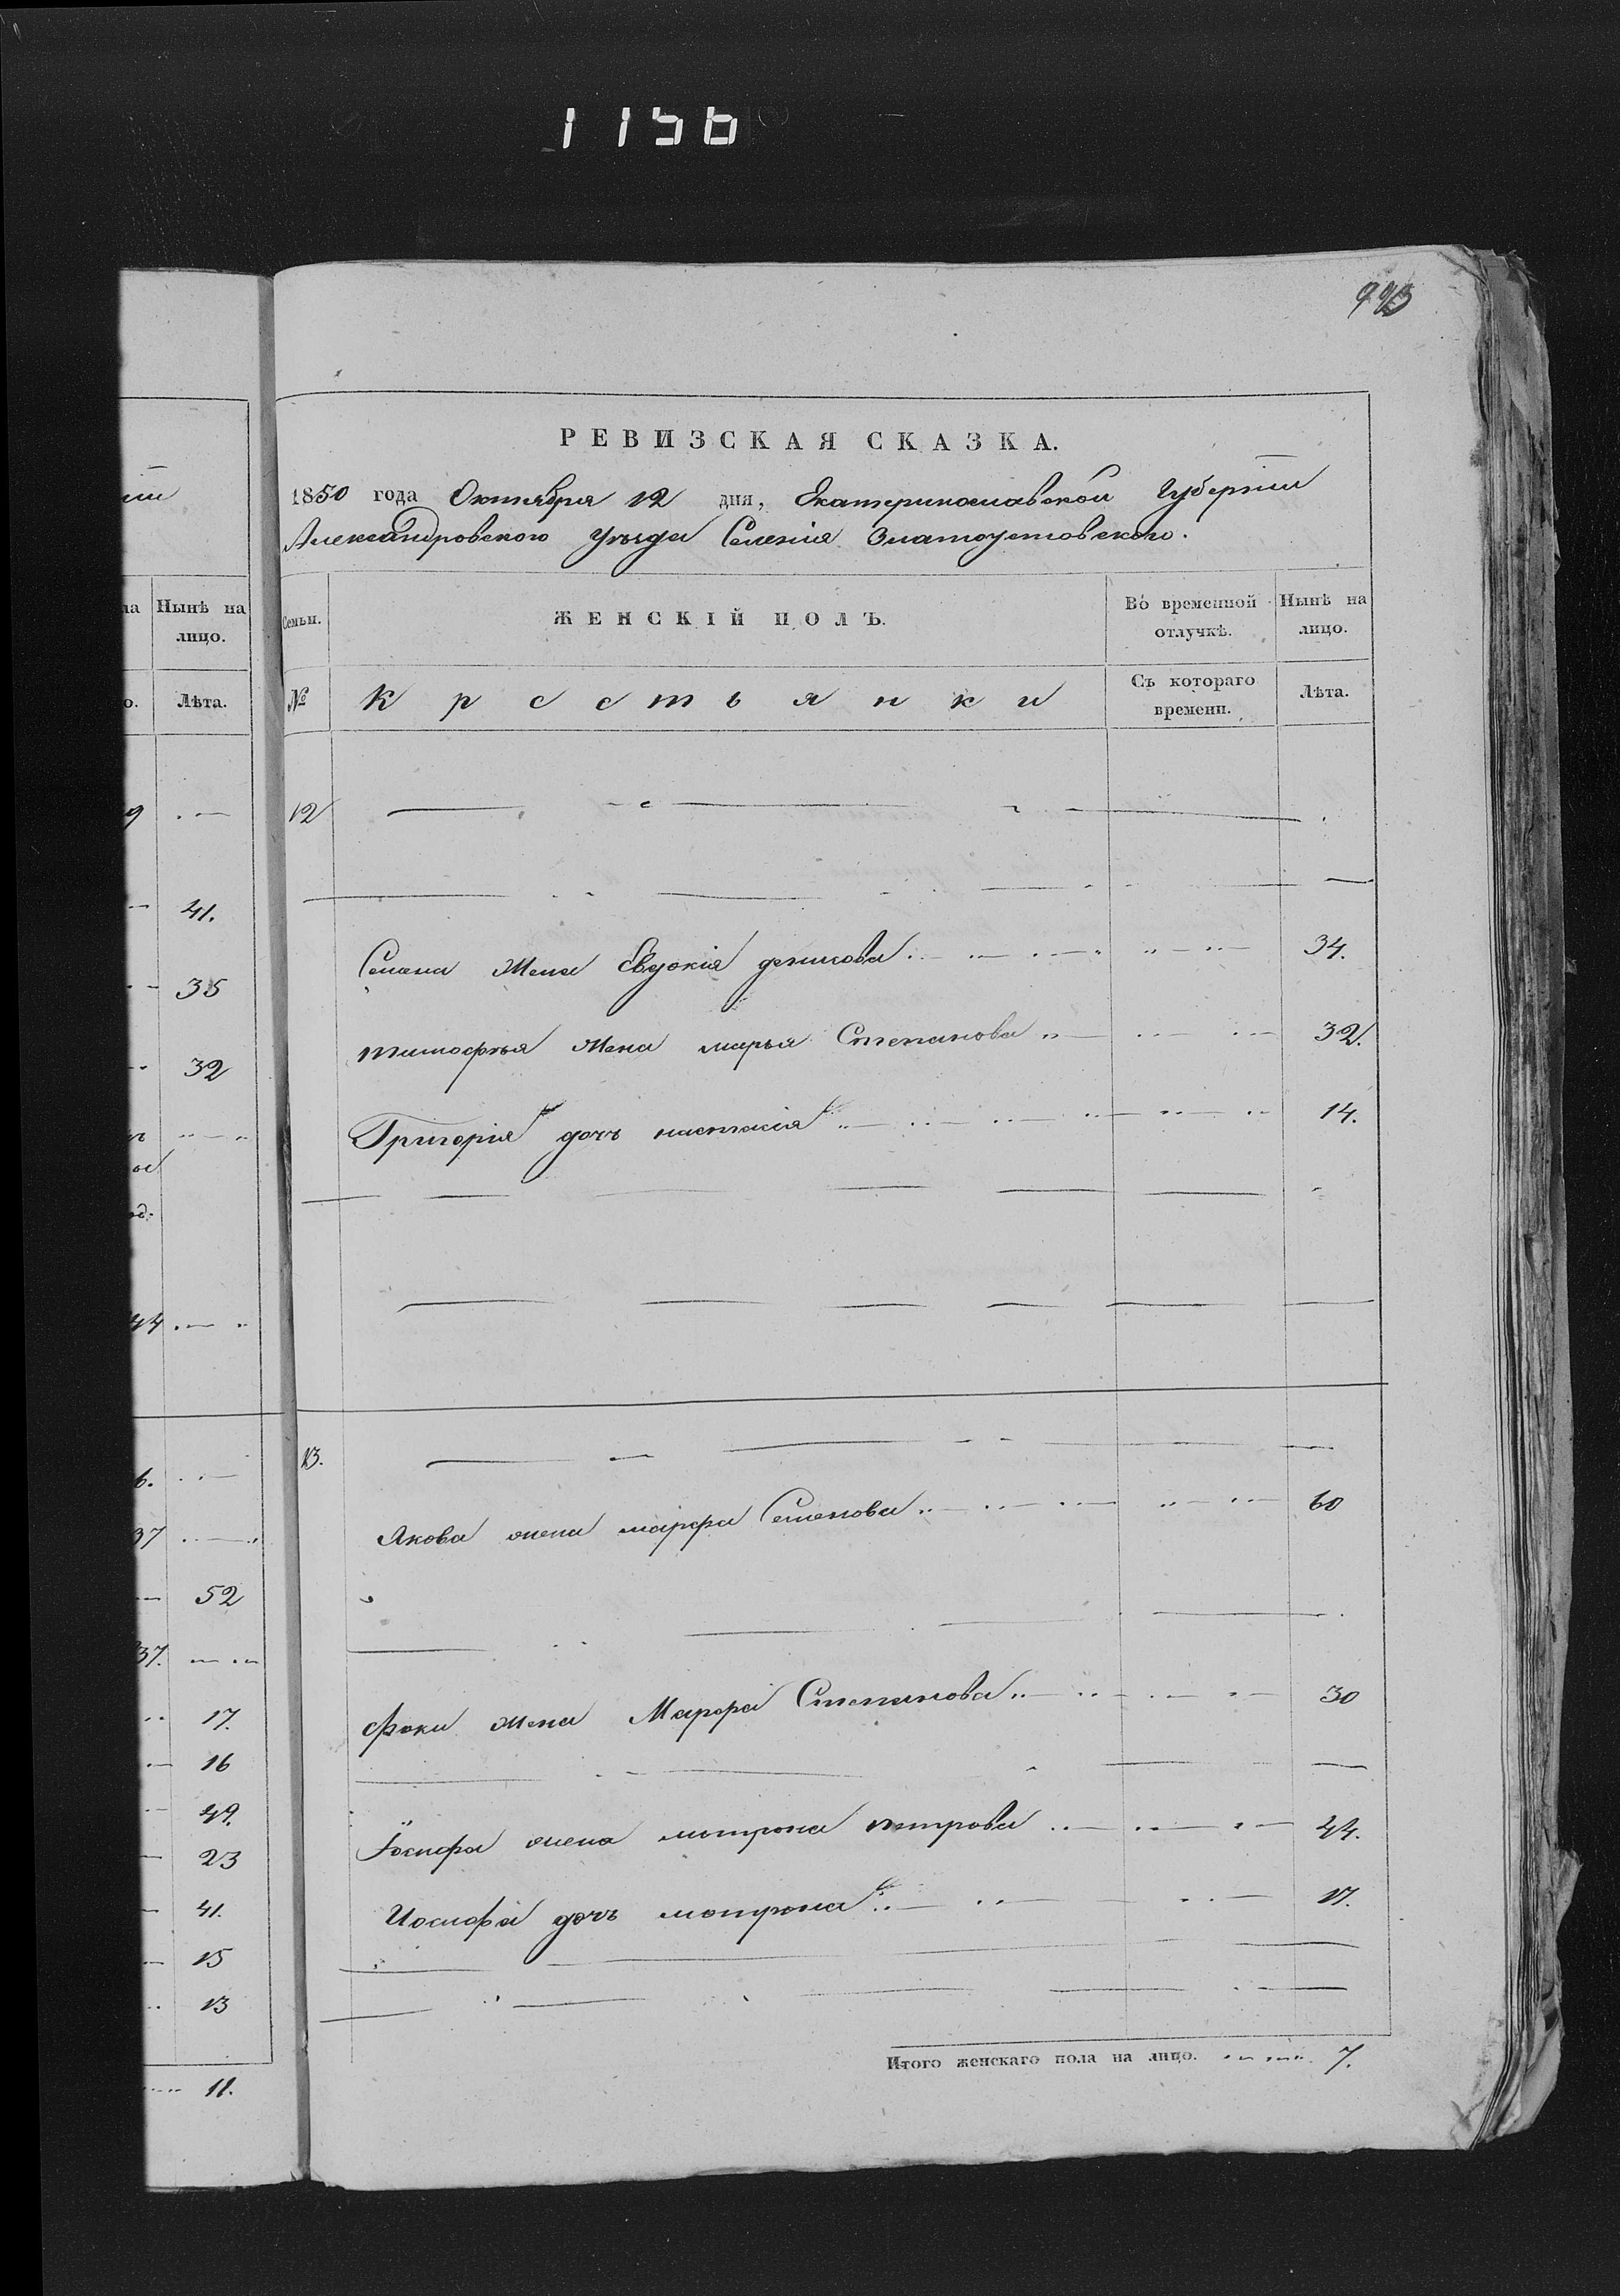 1156
993
РЕВИЗСКАЯ СКАЗКА.
1850 года Октября 12 дня, Екатеринославской Губернiи
Александровского Уѣзда Селенiя Златоустовского.
Нынѣ на лицо.
Лѣта.
41.
35
32
44
6.
37
52
37.
17.
16
49.
23
41.
15
13
11.
Семьи. ЖЕНСКIЙ ПОЛЪ. Во временной отлучкѣ. Нынѣ на лицо.
№ Крестьянки Съ котораго времени. Лѣта.
12
Семена жена Евдокiя денисова 34.
тимофѣя жена марья Степанова 32.
Григорiя дочь настасiя 14.
13.
Якова жена марфа Семенова 60
Фоки жена Марфа Степанова 30
Iосифа жена мотрона петрова 44.
Иосифа дочь мотрона 17.
Итого женскаго пола на лицо. 7.